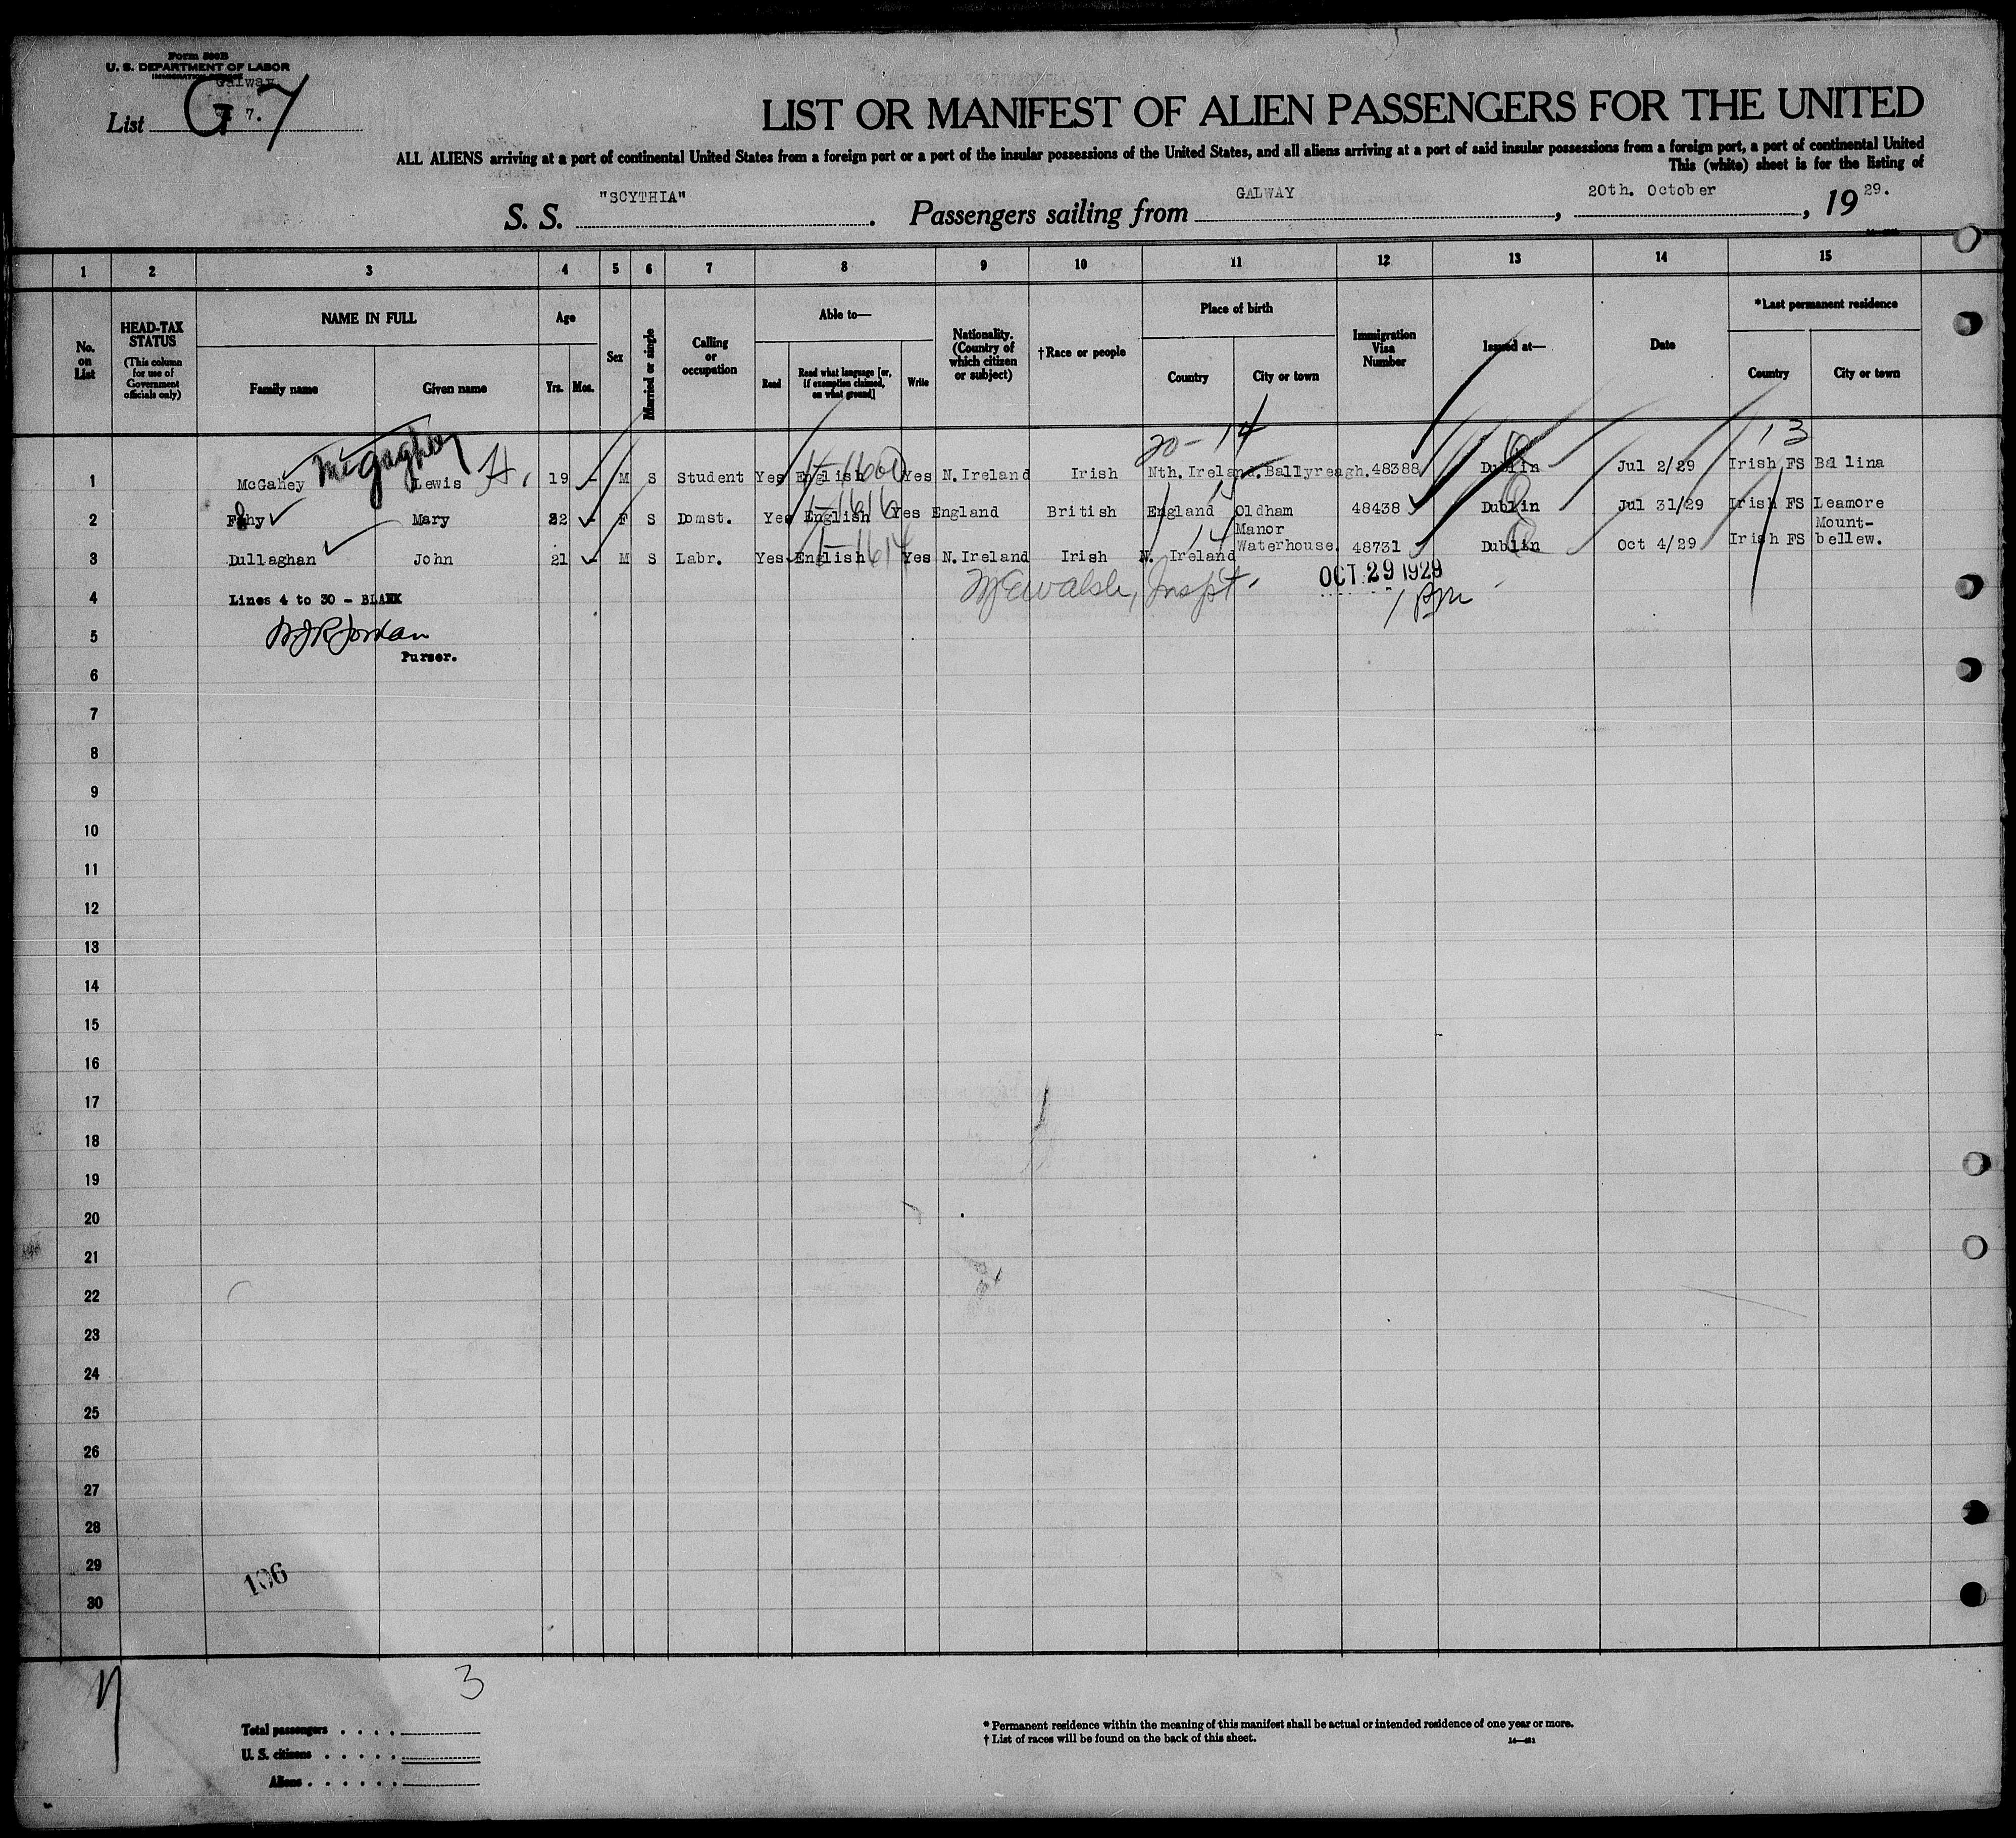 Form 500B
U. S. DEPARTMENT OF LABOR
IMMIGRATION SERVICE
Galway
List G 7. 7
LIST OR MANIFEST OF ALIEN PASSENGERS FOR THE UNITED
ALL ALIENS arriving at a port of continental United States from a foreign port or a port of the insular possessions of the United States, and all aliens arriving at a port of said insular possessions from a foreign port, a port of continental United
This (white) sheet is for the listing of
S. S. "SCYTHIA". Passengers sailing from GALWAY, 20th. October, 1929.
1 2 3 4 5 6 7 8 9 10 11 12 13 14 15
No. on List
HEAD-TAX STATUS
(This column for use of Government officials only)
NAME IN FULL
Family name Given name
Age
Yrs. Mos.
Sex
Married or single
Calling or occupation
Able to—
Read
Read what language [or, if exemption claimed, on what ground]
Write
Nationality. (Country of which citizen or subject)
†Race or people
Place of birth
Country City or town
Immigration Visa Number
Issued at—
Date
*Last permanent residence
Country City or town
20-14
13
1 McGahey McGaghey Lewis H. 19 - M S Student Yes English Yes N.Ireland Irish Nth. Ireland. Ballyreagh. 48388 Dublin Jul 2/29 Irish FS Ballina
2 Fahy Mary 22 - F S Domst. Yes English Yes England British England Oldham 48438 Dublin Jul 31/29 Irish FS Leamore
3 Dullaghan John 21 - M S Labr. Yes English Yes N.Ireland Irish N. Ireland Manor Waterhouse. 48731 Dublin Oct 4/29 Irish FS Mount-bellew.
4 Lines 4 to 30 - BLANK
Walsh, Inspt.
OCT 29 1929
1 pm
5 Jordan
Purser.
6
7
8
9
10
11
12
13
14
15
16
17
18
19
20
21
22
23
24
25
26
27
28
29
30
106
3
Total passengers . . . .
U. S. citizens . . . . .
Aliens . . . . . .
* Permanent residence within the meaning of this manifest shall be actual or intended residence of one year or more.
† List of races will be found on the back of this sheet.
14—481